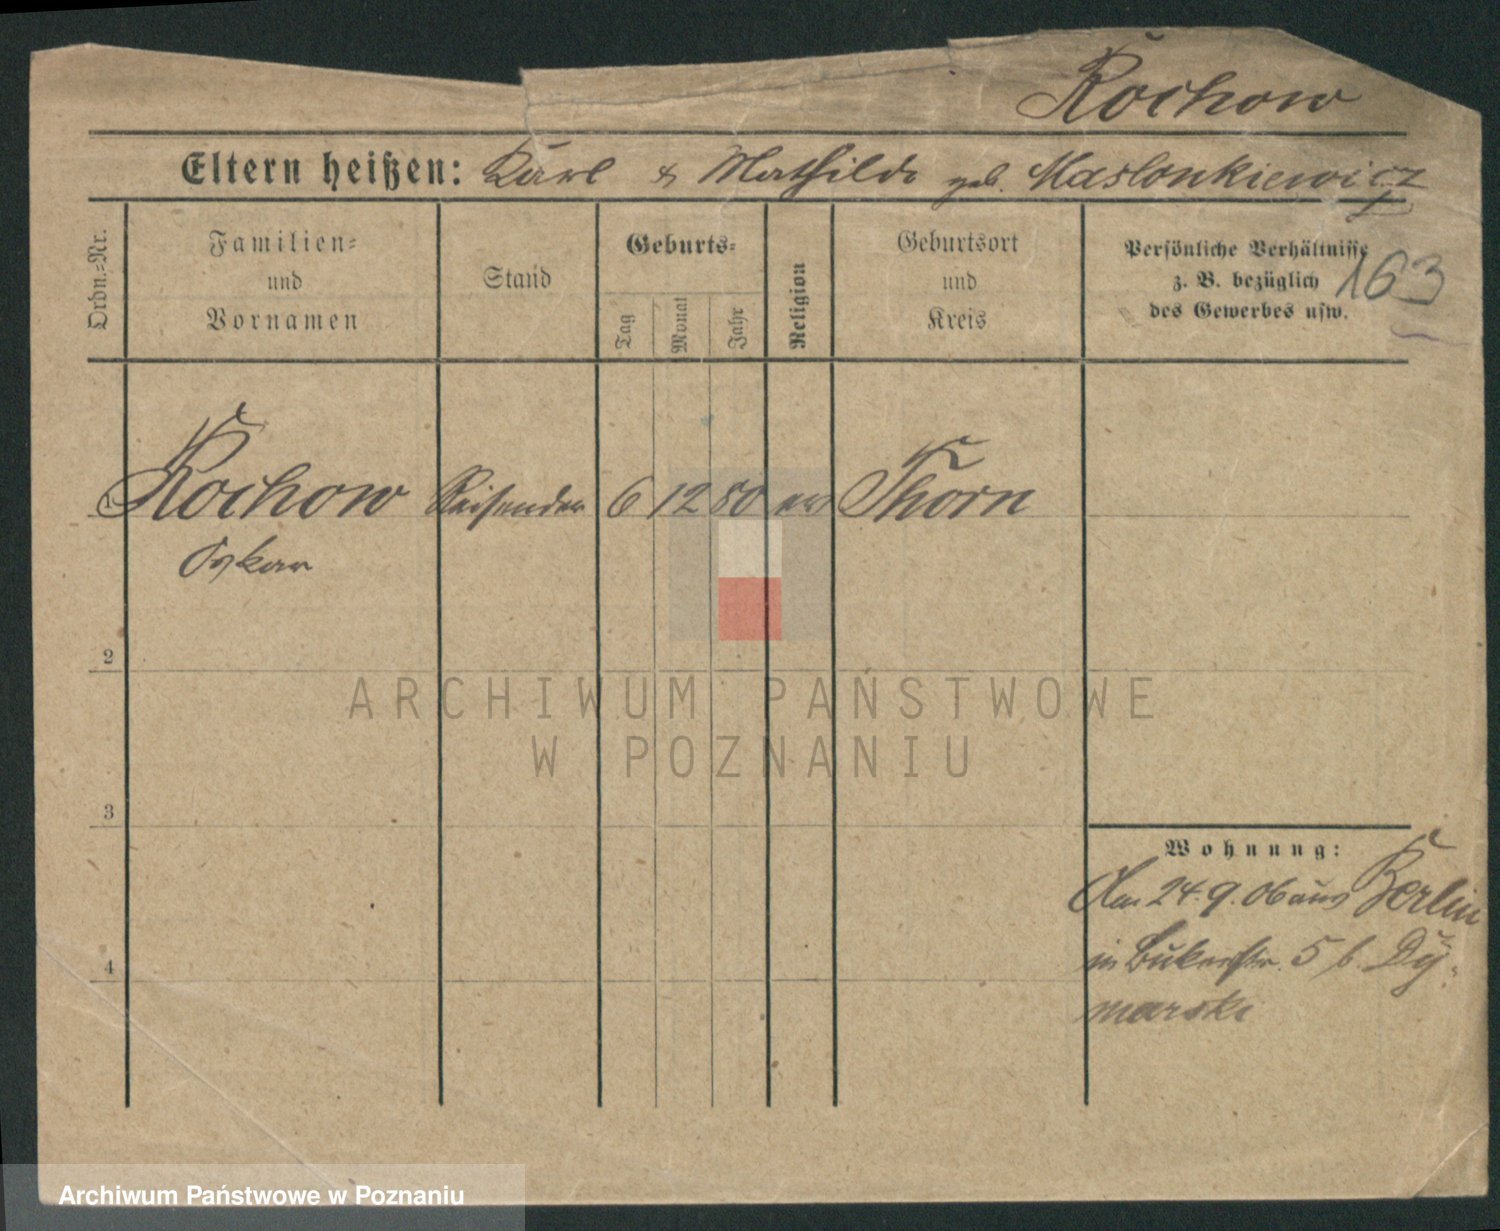 Rochow
Eltern heißen: Karl & Mathilde geb. Maslonkiewicz
163
Ordn.=Nr.
Familien=
und
Vornamen
Stand
Geburts=
Tag
Monat
Jahr
Religion
Geburtsort
und
Kreis
Persönliche Verhältnisse
z. B. bezüglich
des Gewerbes usw.
1 Rochow Reisender 6 12 80 ev Thorn
Oskar
2
3
4
Wohnung:
Am 24.9.06 aus Berlin
in Bukerstr. 5 b. Dy=
marski
ARCHIWUM PAŃSTWOWE
W POZNANIU
Archiwum Państwowe w Poznaniu